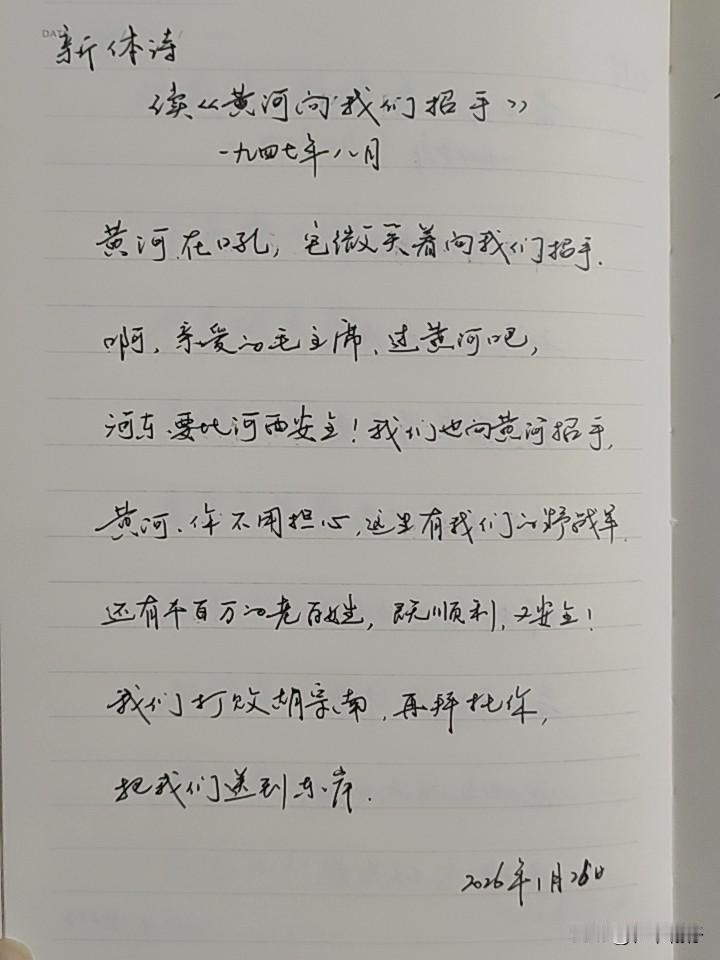 DAT
新体诗
读《黄河向我们招手》
一九四七年八月
黄河在吼，它微笑着向我们招手.
啊，亲爱的毛主席、过黄河吧，
河东要比河西安全！我们也向黄河招手，
黄河、你不用担心，这里有我们的野战军.
还有千百万的老百姓，既顺利，又安全！
我们打败胡宗南，再拜托你，
把我们送到东岸.
2026年1月26日